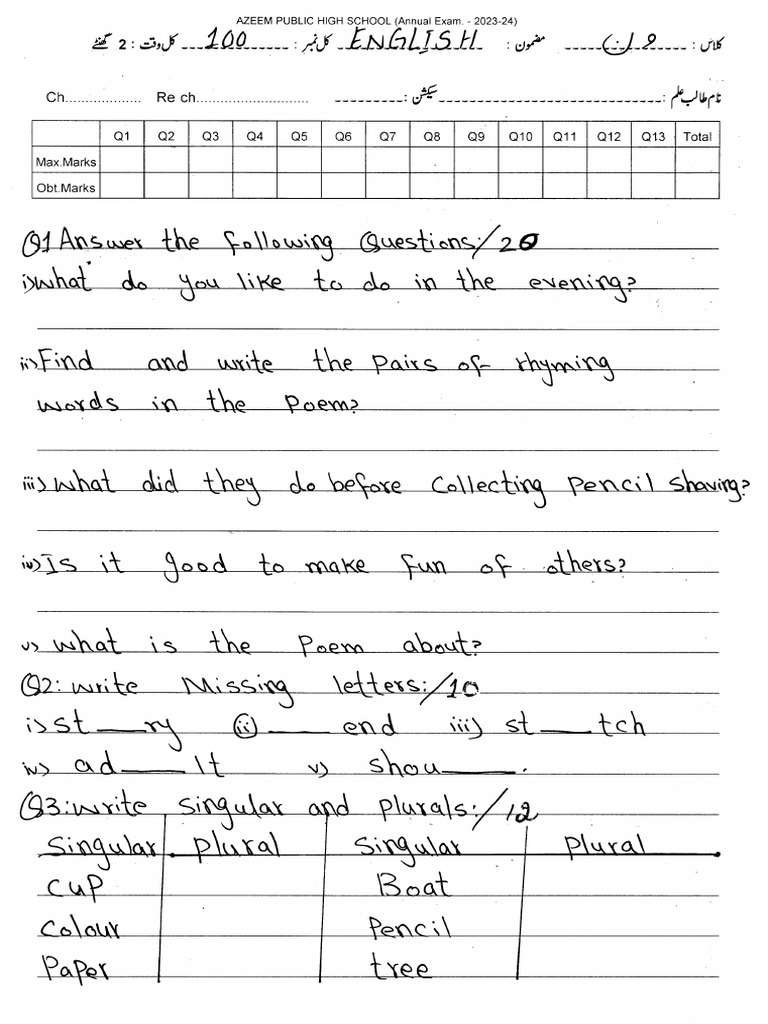 AZEEM PUBLIC HIGH SCHOOL (Annual Exam. - 2023-24)
کلاس: مضمون: ENGLISH کل نمبر: 100 کل وقت: 2 گھنٹے
نام طالب علم: سیکشن: Re ch. Ch.
Q1 Q2 Q3 Q4 Q5 Q6 Q7 Q8 Q9 Q10 Q11 Q12 Q13 Total
Max.Marks
Obt.Marks
Q1 Answer the following Questions/20
i) what do you like to do in the evening?
ii) Find and write the pairs of rhyming
words in the Poem?
iii) What did they do before Collecting Pencil Shaving?
iv) Is it good to make fun of others?
v) What is the Poem about?
Q2: write Missing letters:/10
i) st___ry ii) ___ end iii) st___tch
iv) ad___lt v) shou___.
Q3: write singular and plurals:/12
Singular Plural Singular Plural
Cup Boat
Colour Pencil
Paper tree